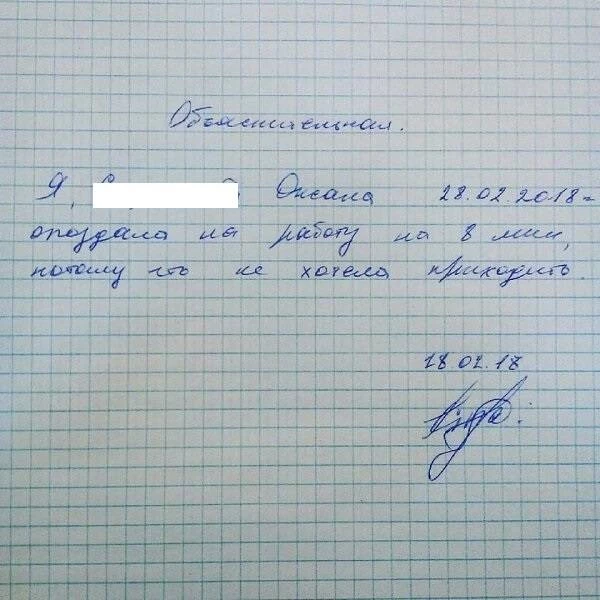 Объяснительная.
Я, Оксана 28.02.2018г
опоздала на работу на 8 мин,
потому что не хотела приходить.
28.02.18